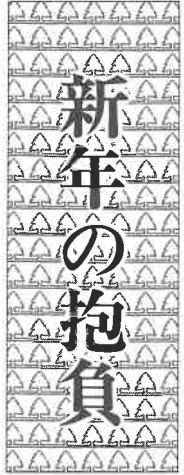 新年の抱負